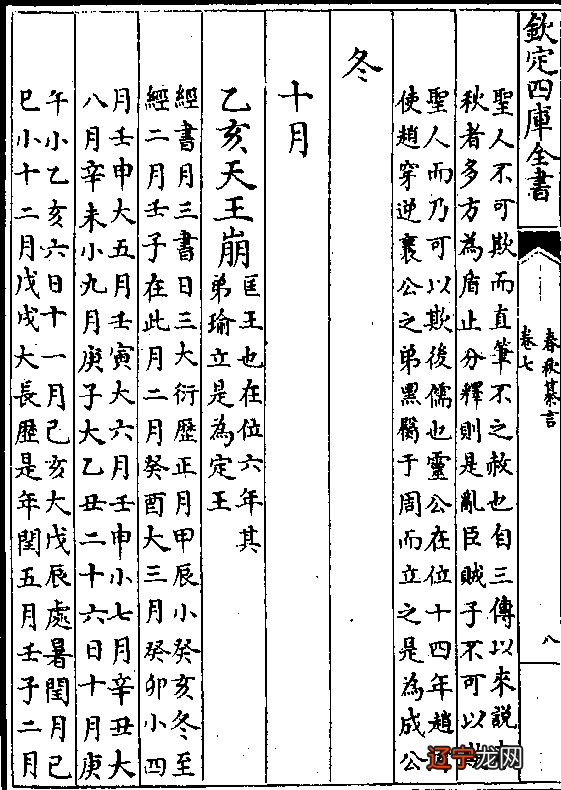 欽定四庫全書
春秋纂言
卷七
八
聖人不可欺而直筆不之赦也自三傳以來説
秋者多方為盾止分釋則是亂臣賊子不可以
聖人而乃可以欺後儒也靈公在位十四年趙
使趙穿逆襄公之弟黑臀于周而立之是為成公
冬
十月
乙亥天王崩
匡王也在位六年其
弟瑜立是為定王
經書月三書日三大衍歷正月甲辰小癸亥冬至
經二月壬子在此月二月癸酉大三月癸卯小四
月壬申大五月壬寅大六月壬申小七月辛丑大
八月辛未小九月庚子大乙丑二十六日十月庚
午小乙亥六日十一月己亥大戊辰處暑閏月己
巳小十二月戊戌大長歷是年閏五月壬子二月
辽宁龙网